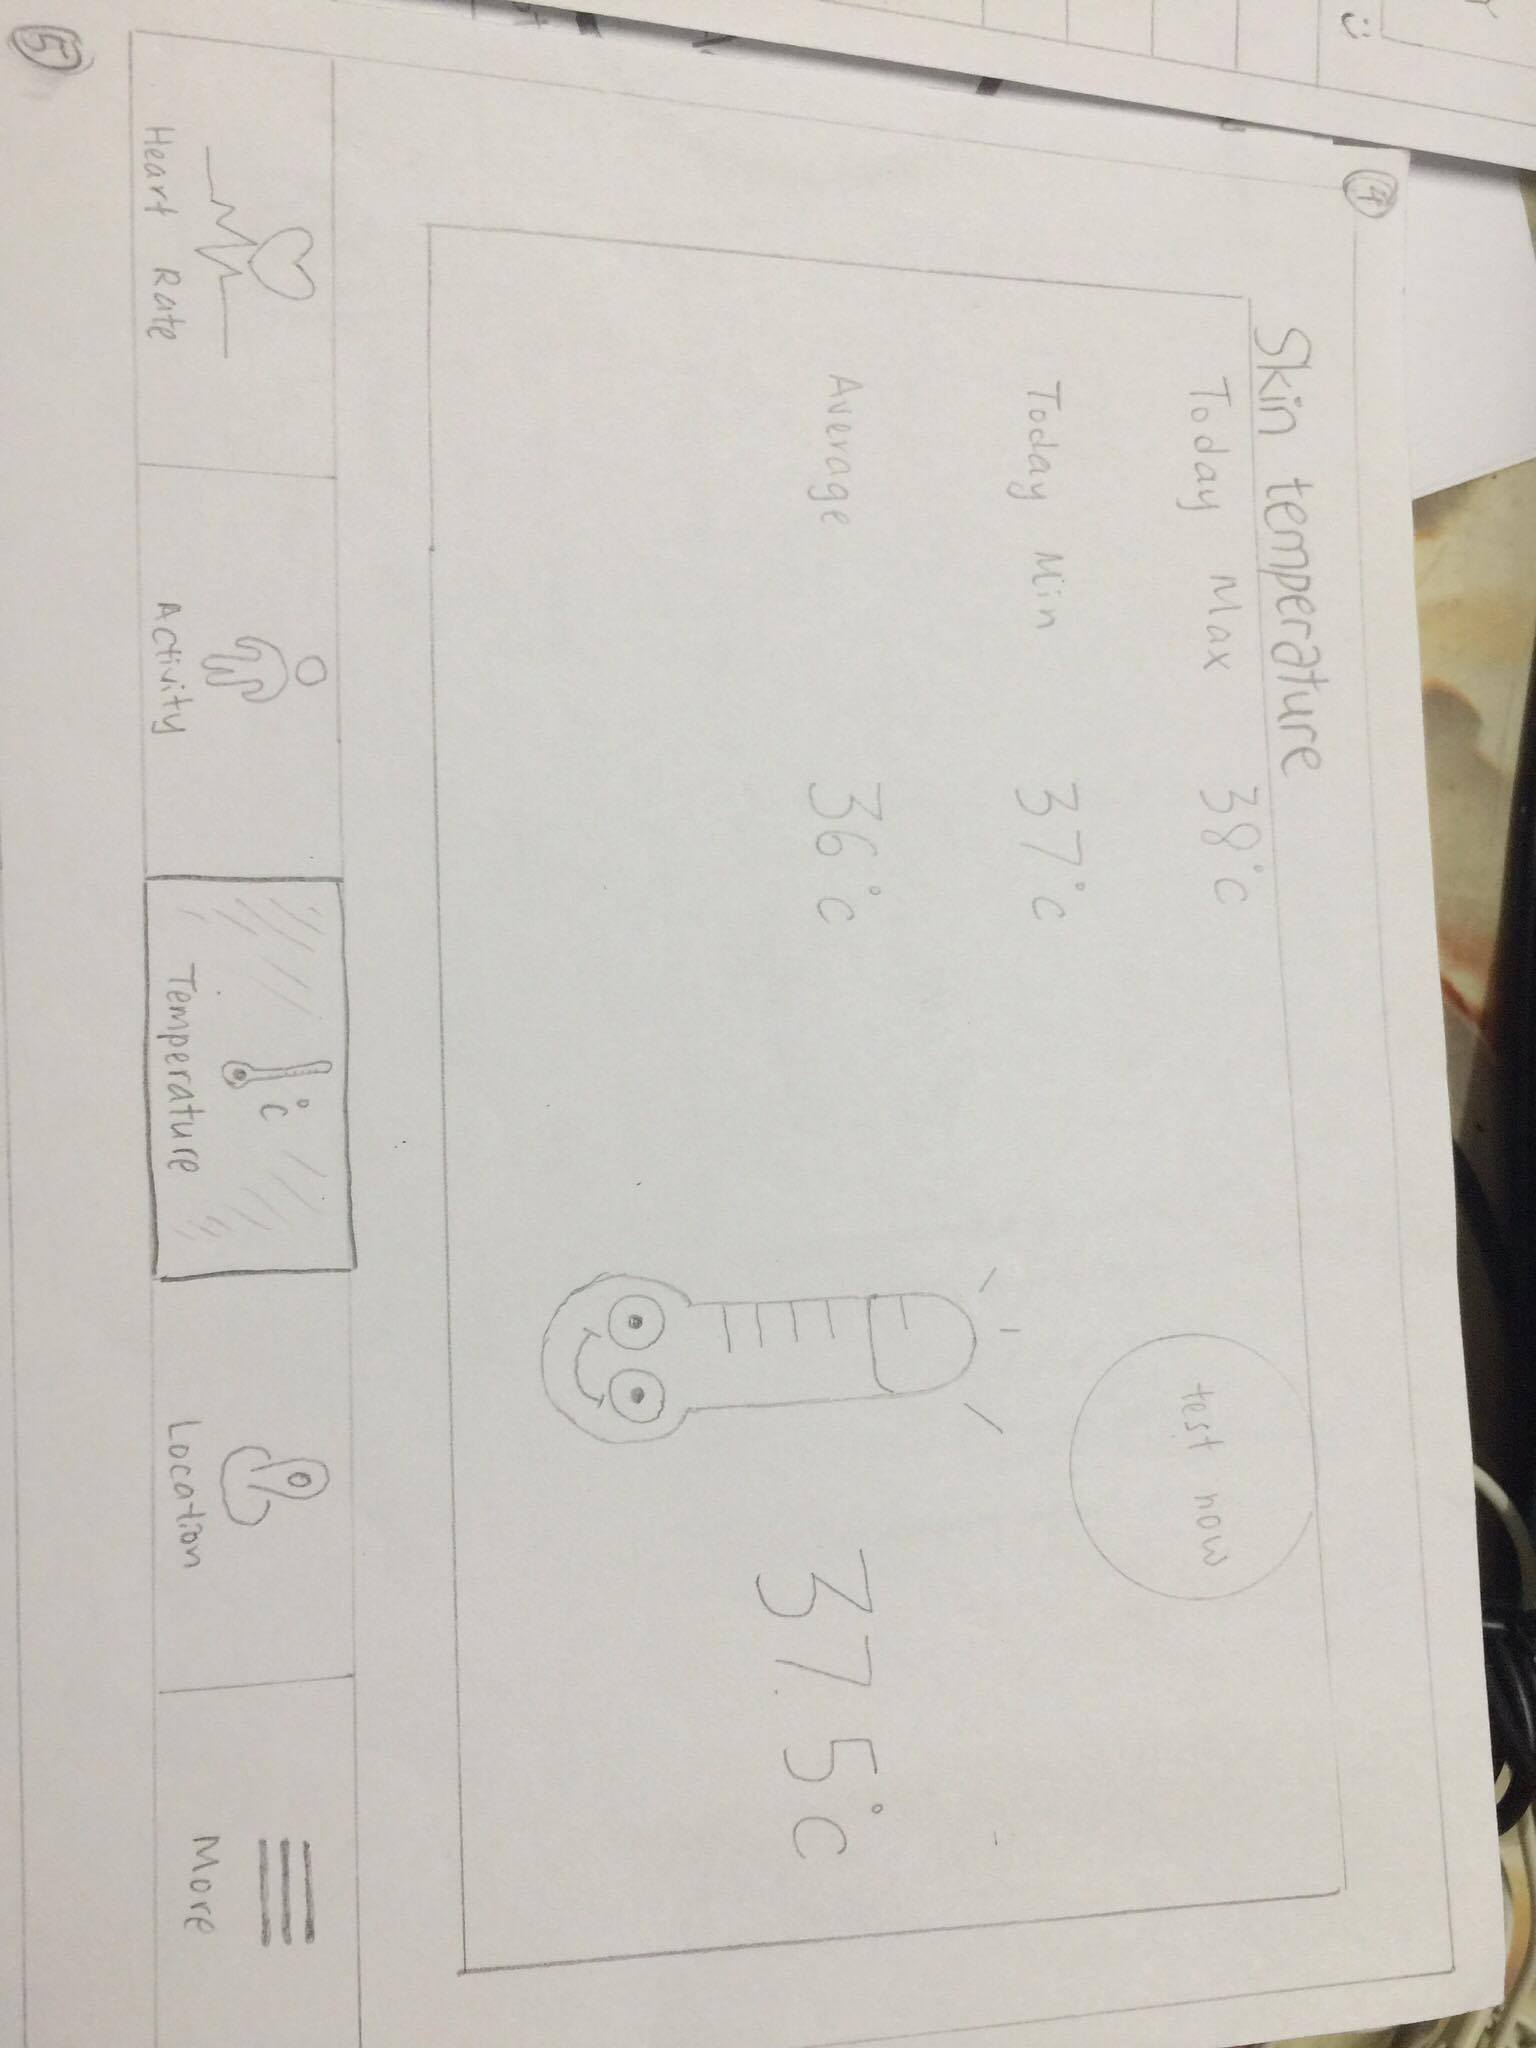 4
Skin temperature
Today Max 38°C
test now
Today Min 37°C
Average 36°C
37.5°C
Heart Rate
Activity
°C
Temperature
Location
More
5